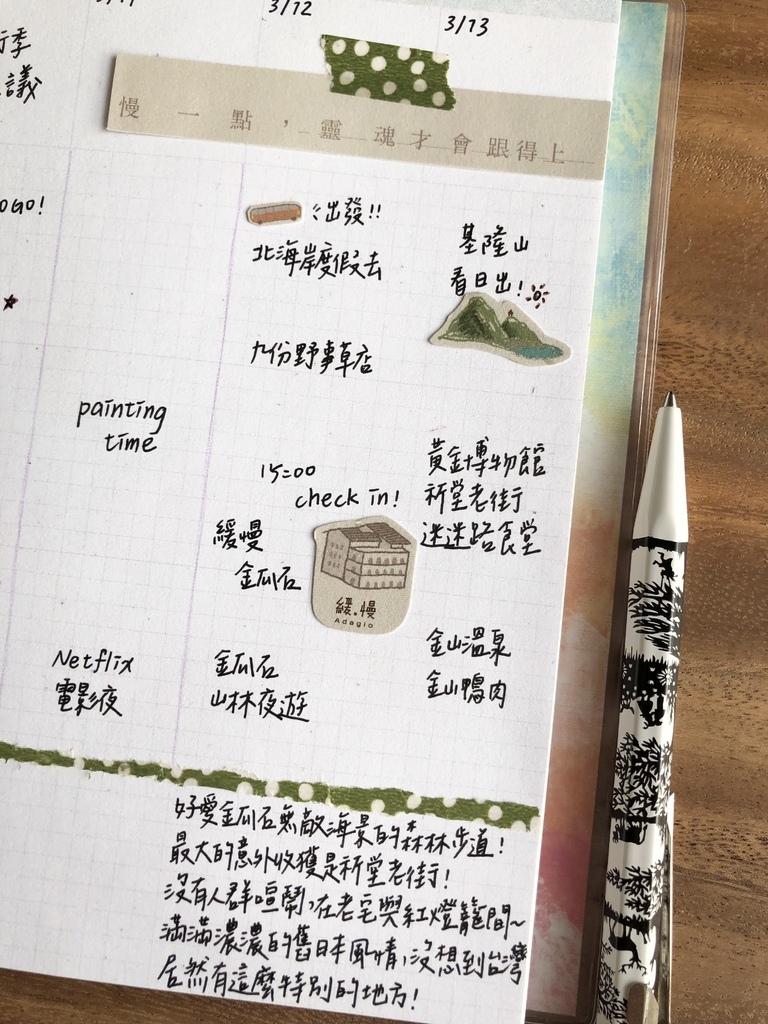 3/12
3/13
行季
議
慢一點，靈魂才會跟得上
OGO!
出發!!
北海岸度假去
基隆山
看日出!
九份野事草店
painting
time
15:00
check in!
黃金博物館
祈堂老街
迷迷路食堂
緩慢
金瓜石
緩。慢
Adagio
Netflix
電影夜
金瓜石
山林夜遊
金山溫泉
金山鴨肉
好愛金瓜石無敵海景的森林步道!
最大的意外收獲是祈堂老街!
沒有人群喧鬧,在老宅與紅燈籠間~
滿滿濃濃的舊日本風情,沒想到台灣
居然有這麼特別的地方!